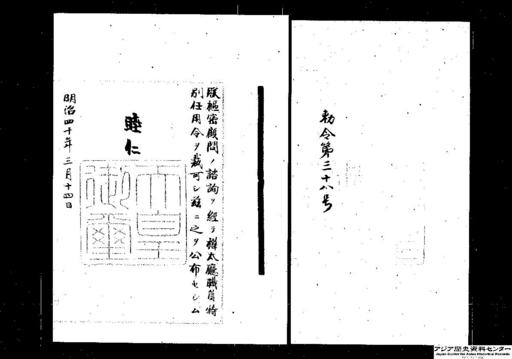 勅令第三十八号
朕樞密顧問ノ諮詢ヲ經テ樺太廳職員特
別任用令ヲ裁可シ玆ニ之ヲ公布セシム
睦仁
天皇
御璽
明治四十年三月十四日
アジア歴史資料センター
Japan Center for Asian Historical Records